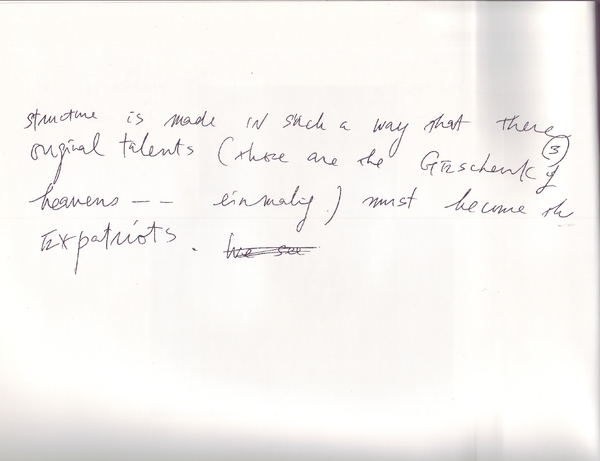 structure is made in such a way that there
original talents (those are the Geschenk of
3
heavens -- einmalig) must become the
Expatriots. we see